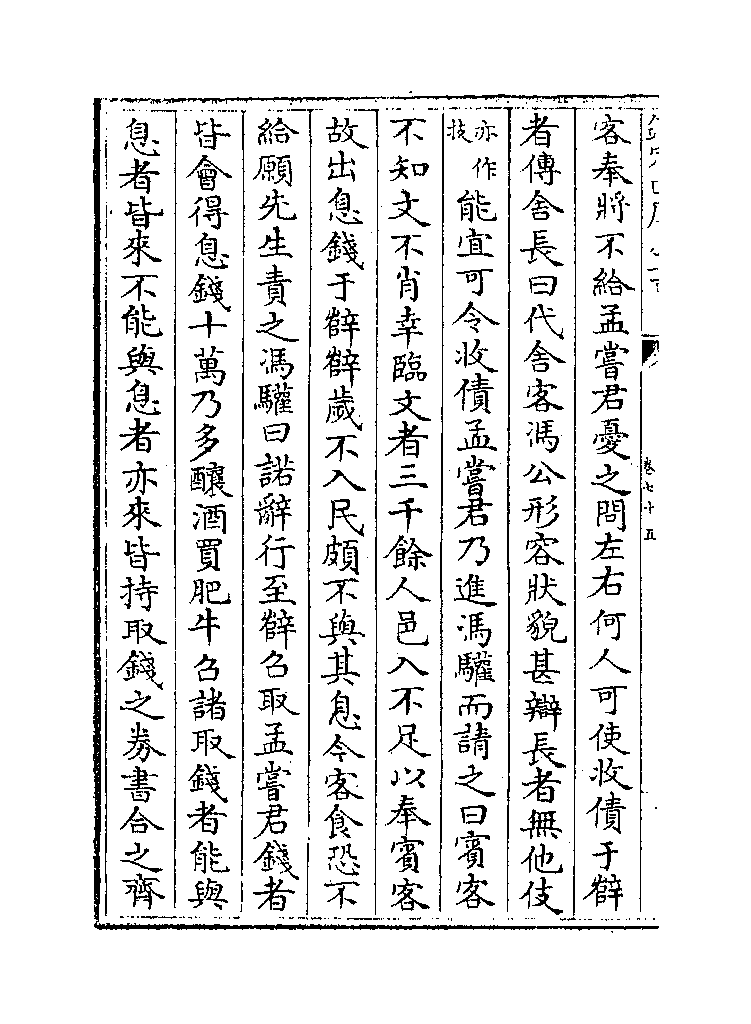 客奉將不給孟嘗君憂之問左右何人可使收債于薛
者傳舍長曰代舍客馮公形容狀貌甚辯長者無他伎
亦作技能宜可令收債孟嘗君乃進馮驩而請之曰賓客
不知文不肖幸臨文者三千餘人邑入不足以奉賓客
故出息錢于薛薛歲不入民頗不與其息今客食恐不
給願先生責之馮驩曰諾辭行至薛召取孟嘗君錢者
皆會得息錢十萬乃多釀酒買肥牛召諸取錢者能與
息者皆來不能與息者亦來皆持取錢之券書合之齊
卷七十五